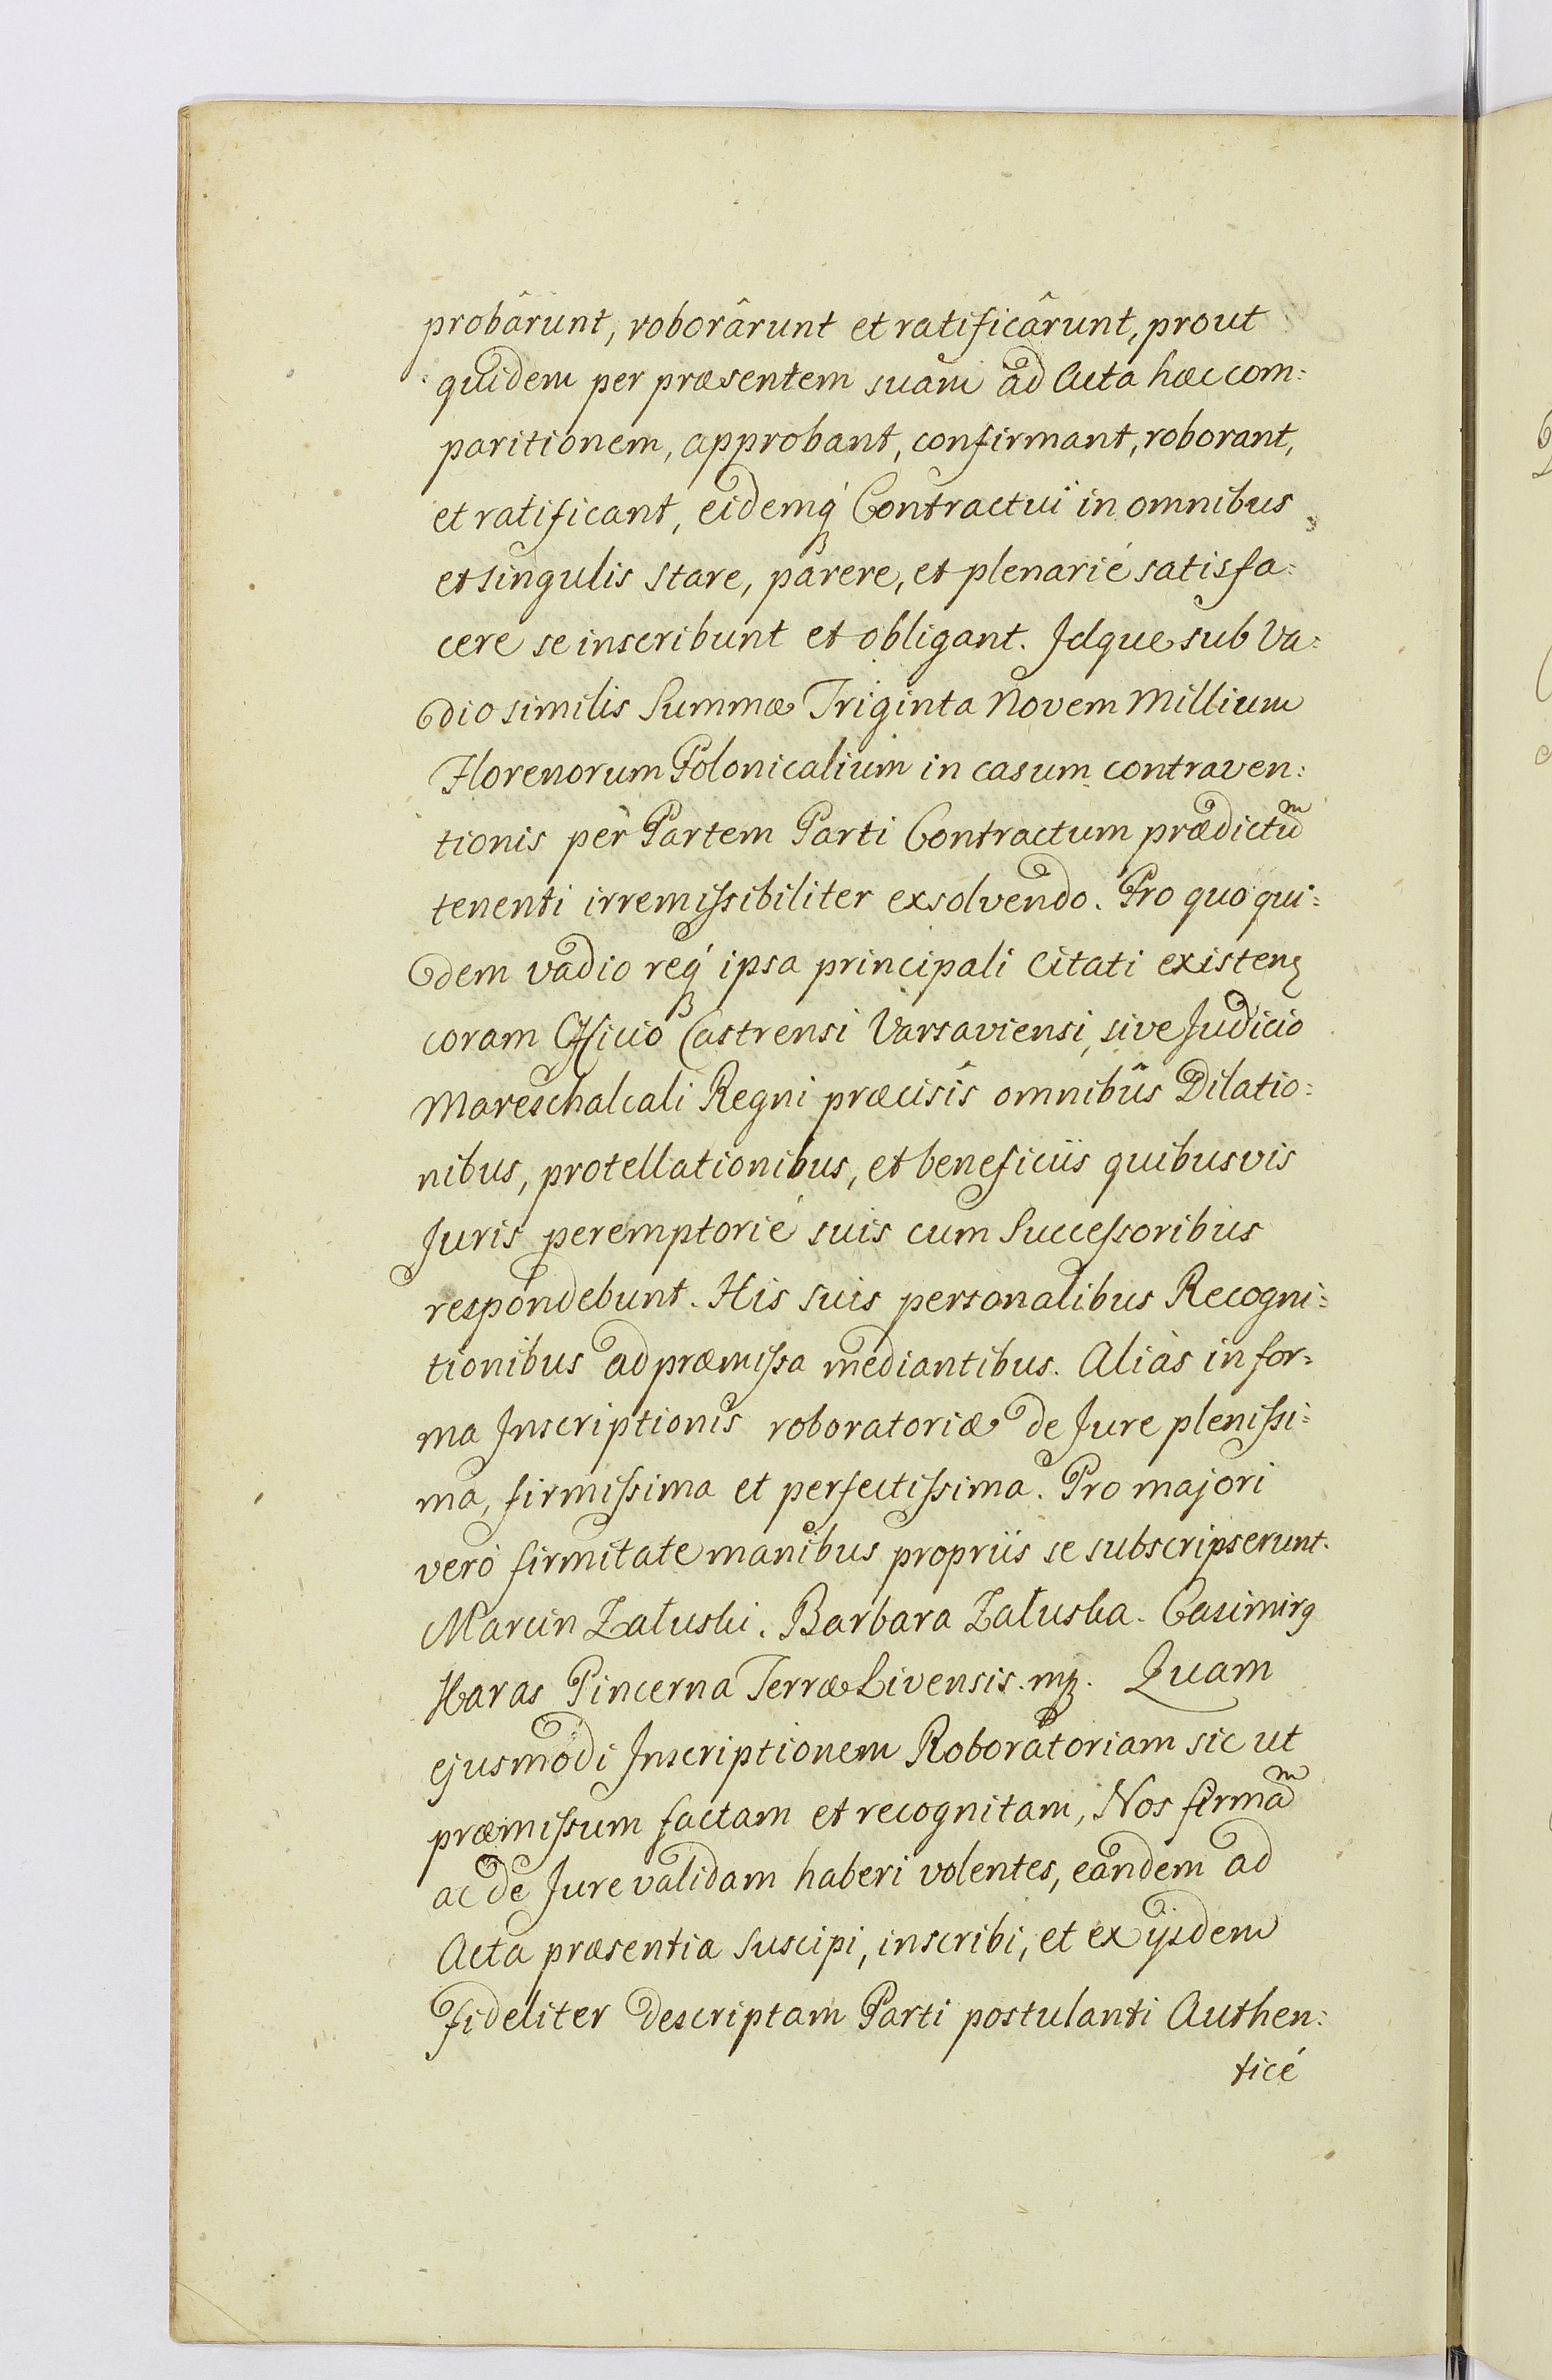 probârunt, roborârunt et ratificârunt, prout
quidem per præsentem suam ad Acta hæc com:
paritionem, approbant, confirmant, roborant,
et ratificant, eidemq́ Contractui in omnibus
et singulis stare, parere, et plenarié satisfa:
cere se inscribunt et obligant. Idque sub Va:
dio similis Summæ Triginta Novem Millium
Florenorum Polonicalium in casum contraven:
tionis per Partem Parti Contractum prædictũ
tenenti irremissibiliter exsolvendo. Pro quo qui:
dem vadio req́ ipsa principali Citati existen
coram Officio Castrensi Varsaviensi, sive Judicio
Mareschalcali Regni præcisîs omnibûs Dilatio:
nibus, protellationibus, et beneficiis quibusvis
Juris peremptorié suis cum Successoribus
respondebunt. His suis personalibus Recogni:
tionibus ad præmissa mediantibus. Aliàs in for:
ma Inscriptionis roboratoriæ de Jure plenissi:
ma, firmissima et perfectissima. Pro majori
verò firmitate manibus propriis se subscripserunt.
Marcin Załuski. Barbara Załuska. Casimirꝰ
Haras Pincerna Terræ Livensis. mp. Quam
ejusmodi Inscriptionem Roboratoriam sic ut
præmissum factam et recognitam, Nos firmã
ac de Jure validam haberi volentes, eandem ad
Acta præsentia suscipi, inscribi, et ex ijsdem
fideliter descriptam Parti postulanti Authen:
ticé